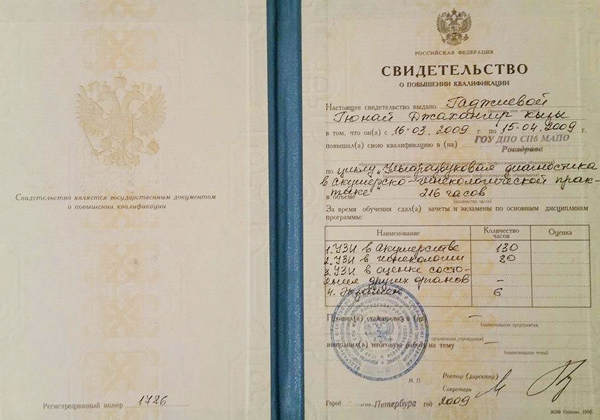 Свидетельство является государственным документом
о повышении квалификации
Регистрационный номер 1726
РОССИЙСКАЯ ФЕДЕРАЦИЯ
СВИДЕТЕЛЬСТВО
О ПОВЫШЕНИИ КВАЛИФИКАЦИИ
Настоящее свидетельство выдано Гаджиевой
Гюнай Джахангир кызы
в том, что он(а) с 16.03.2009 г. по 15.04.2009 г.
повышал(а) свою квалификацию в (на) ГОУ ДПО СПб МАПО
Росздрава
по циклу "Ультразвуковая диагностика
в акушерско-гинекологической прак-
тике"
в объеме 216 часов
За время обучения сдал(а) зачеты и экзамены по основным дисциплинам
программы:
Наименование Количество часов Оценка
1. УЗИ в акушерстве 130
2. УЗИ в гинекологии 80
3. УЗИ в оценке состо-
яния других органов –
4. Экзамен 6
Прошел(а) стажировку в (на) –
выполнил(а) итоговую работу на тему –
М. П.
Ректор (директор)
Секретарь
Город Петербург год 2009